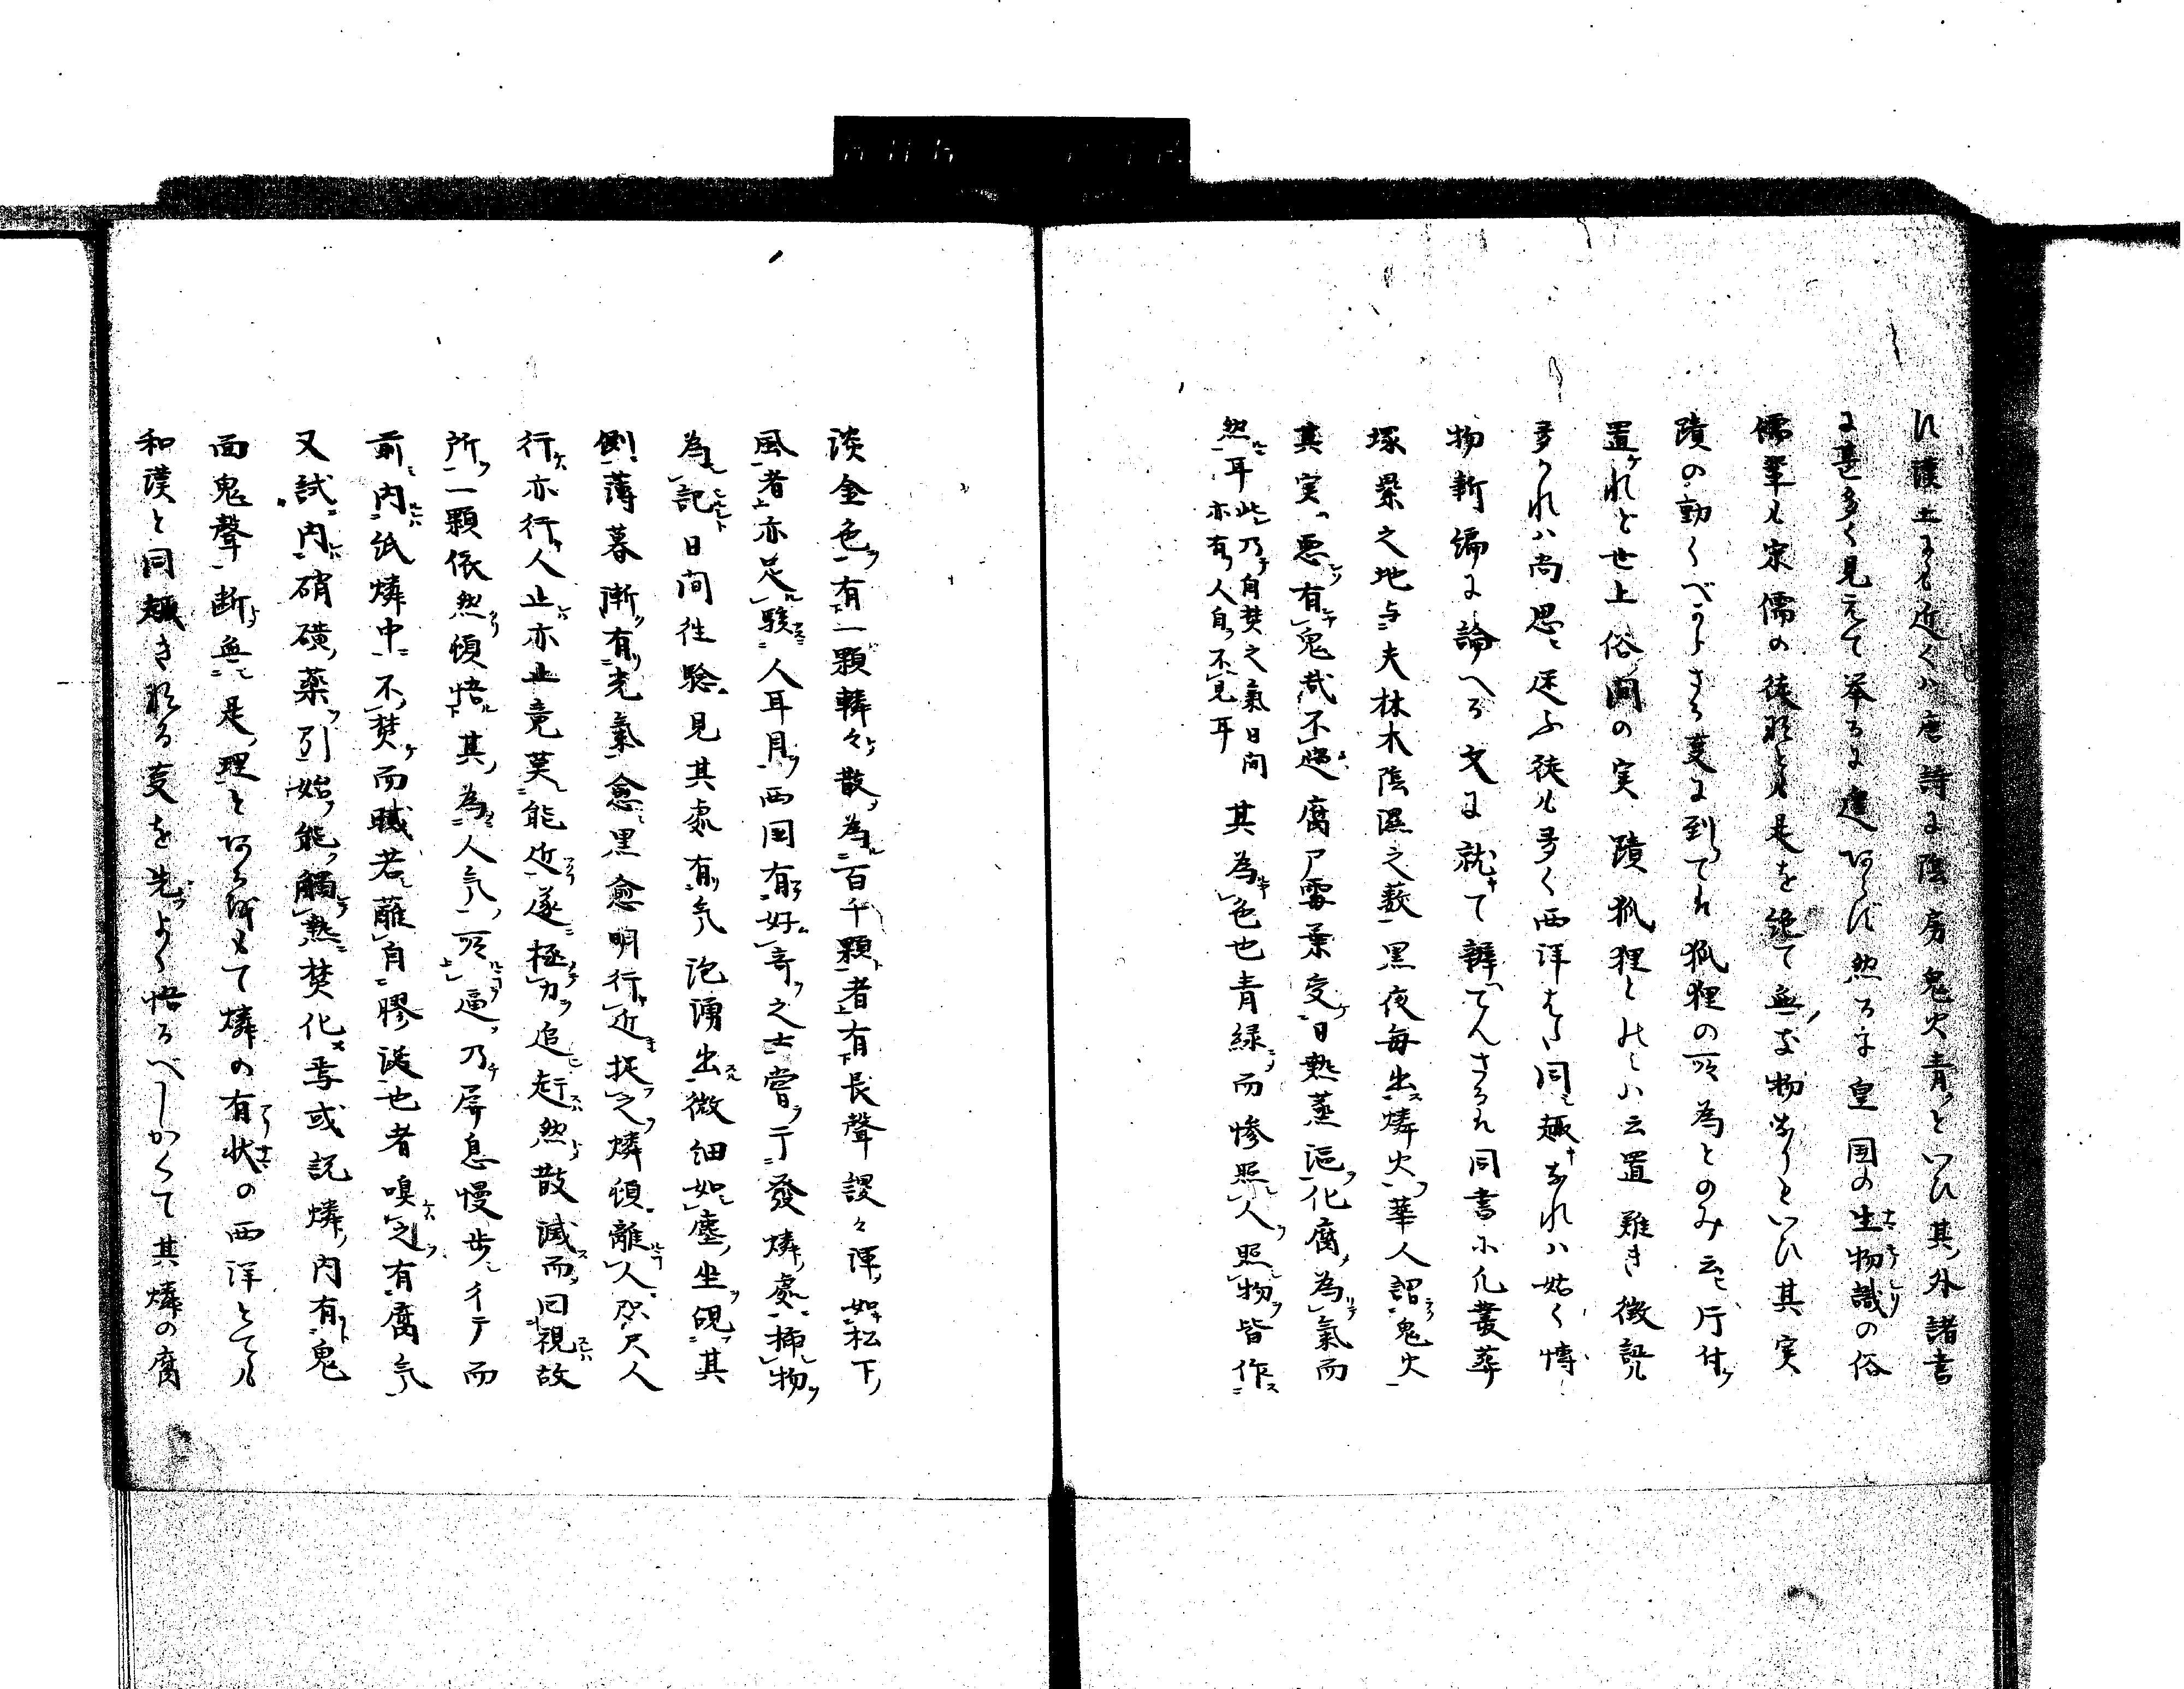 れ漢土にも近くハ唐詩に陰房鬼火青しといひ其外諸書
に甚多く見えて挙るに遑あらず然るを皇国の生物識の俗
儒輩も宋儒の徒なども是を絶て無き物なりといひ其実
蹟の動くべからざる変に到てハ狐狸の所為とのみ云て片付
置れど世上俗間の実蹟狐狸とのミハ云置難き徴証
多かれハ尚思ふに足ふ徒も多く西洋もまた同し趣なれハ姑く博
物新編に論へる文に就て辨でんさるハ同書に凡叢葬
塚累之地与夫林木陰濕之薮黒夜毎出燐火華人謂鬼火
其実悪有鬼哉不過腐尸霉葉受日熱蒸漚化腐為氣而
然耳此乃自焚之氣日間亦有人自不見耳其為色也青緑而惨照人照物皆作
淡金色有一顆轔々散為百千顆者有長聲謖々陣如松下
風者亦足駭人耳目西国有好奇之士嘗于發燐處插物
為記日間往驗見其處有気泡湧出微細如塵坐覘其
側薄暮漸有光氣愈黒愈明行近捉之燐頓離人咫尺人
行亦行人止亦止竟莫能近遂極力追赶然散滅而回視故
所一顆依然頓悟其為人気所逼乃屏息慢歩行而
前内紙燐中不焚而膩若蘸自膠漆也者嗅之有腐気
又試内硝磺薬引始能觸熱焚化焉或説燐内有鬼
面鬼聲断無是理とあるを以て燐の有状の西洋とても
和漢と同趣きなる変を先よく悟るべしかくて其燐の腐